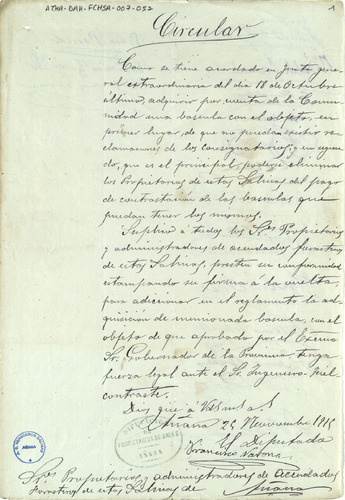 ATHA-DAH-FCHSA-007-052
1
Circular
Como se tiene acordado en Junta gene-
ral extraordinaria del dia 18 de Octubre
último, adquirir por cuenta de la Comu-
nidad una bascula con el objeto, en
primer lugar, de que no puedan existir re-
clamaciones de los consignatarios; y en segun-
do, que es el principal, poderse eliminar
los Propietarios de estas Salinas del pago
de contrastacion de las basculas que
puedan tener los mismos.
Suplico á todos los Sres Propietarios
y administradores de acendados forasteros
de estas Salinas, presten su conformidad
estampando su firma á la vuelta,
para adicionar en el reglamento la ad-
quisición de mencionada bascula, con el
objeto de que aprobado por el Excmo
Sr. Gobernador de la Provincia, tenga
fuerza legal ante el Sr. Ingeniero-Fiel
contraste.
Dios gue á Vds. m. a.
Añana 24 Noviembre 1915
El Diputado
Francisco
PROPIETARIOS DE SALINAS
AÑANA
Sres Propietarios, administradores de acendados
forasteros de estas Salinas de Añana
AÑANA